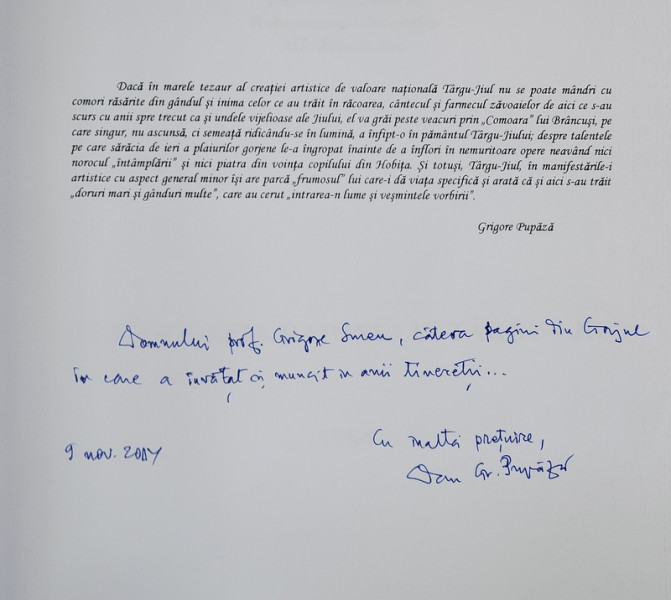 Dacă în marele tezaur al creației artistice de valoare națională Târgu-Jiul nu se poate mândri cu
comori răsărite din gândul și inima celor ce au trăit în răcoarea, cântecul și farmecul zăvoaielor de aici ce s-au
scurs cu anii spre trecut ca și undele vijelioase ale Jiului, el va grăi peste veacuri prin „Comoara” lui Brâncuși, pe
care singur, nu ascunsă, ci semeață ridicându-se în lumină, a înfipt-o în pământul Târgu-Jiului; despre talentele
pe care sărăcia de ieri a plaiurilor gorjene le-a îngropat înainte de a înflori în nemuritoare opere neavând nici
norocul „întâmplării” și nici piatra din voința copilului din Hobița. Și totuși, Târgu-Jiul, în manifestările-i
artistice cu aspect general minor își are parcă „frumosul” lui care-i dă viața specifică și arată că și aici s-au trăit
„doruri mari și gânduri multe”, care au cerut „intrarea-n lume și veșmintele vorbirii”.
Grigore Pupăză
Domnului prof. Grigore Smeu, câteva pagini din Gorjul
în care a învățat și muncit în anii tinereții...
Cu înaltă prețuire,
9 nov. 2017
Dan Gr. Pupăză